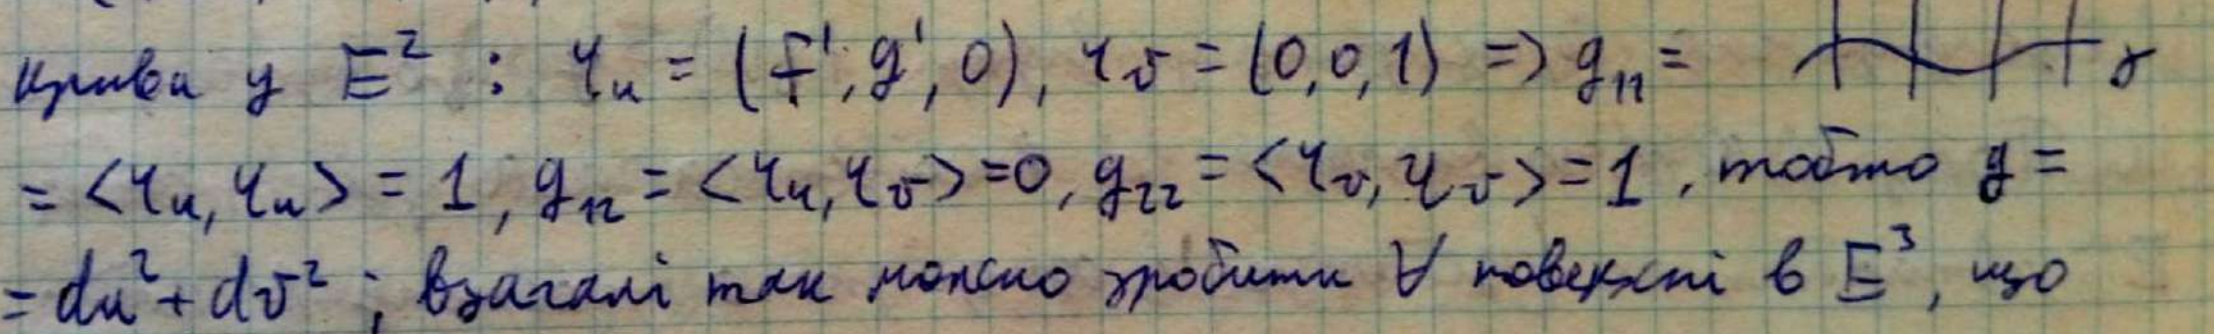 крива у E² : r_u = (f', g', 0), r_v = (0,0,1) => g₁₁ = γ
= <r_u, r_u> = 1, g₁₂ = <r_u, r_v> = 0, g₂₂ = <r_v, r_v> = 1, тобто g =
= du² + dv² ; взагалі так можно зробити ∀ поверхні в E³, що